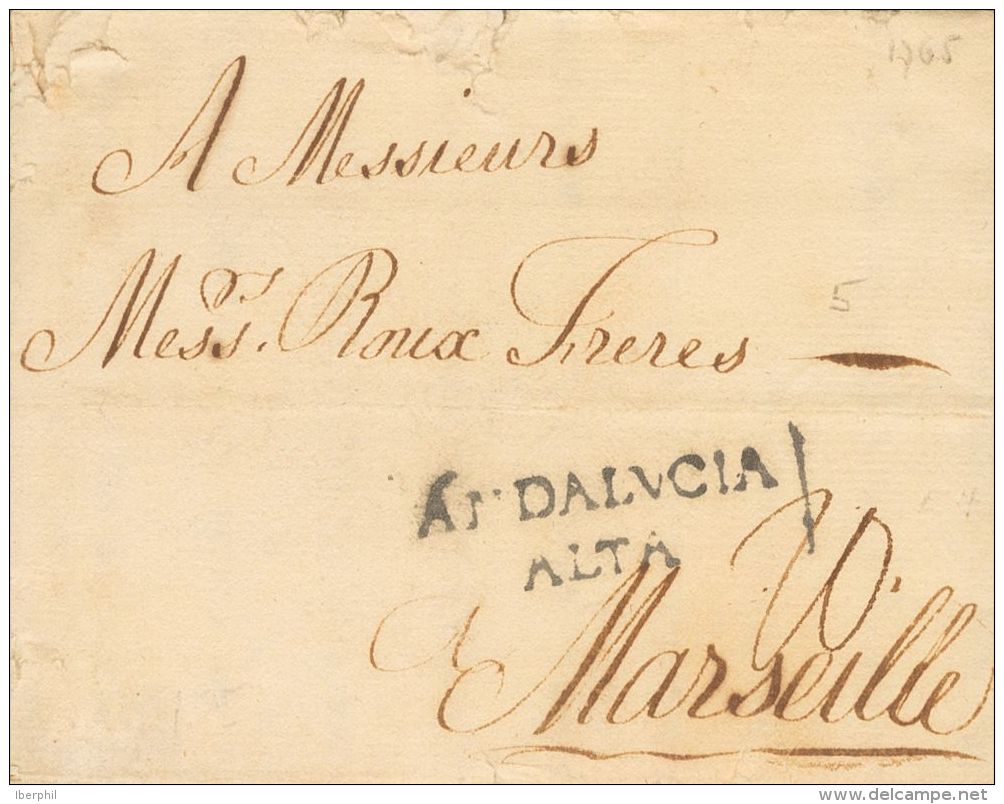 1765
A Messieurs
Mess.rs Roux Freres
5
ANDALVCIA
ALTA
A Marseille
Iberphil
www.delcampe.net